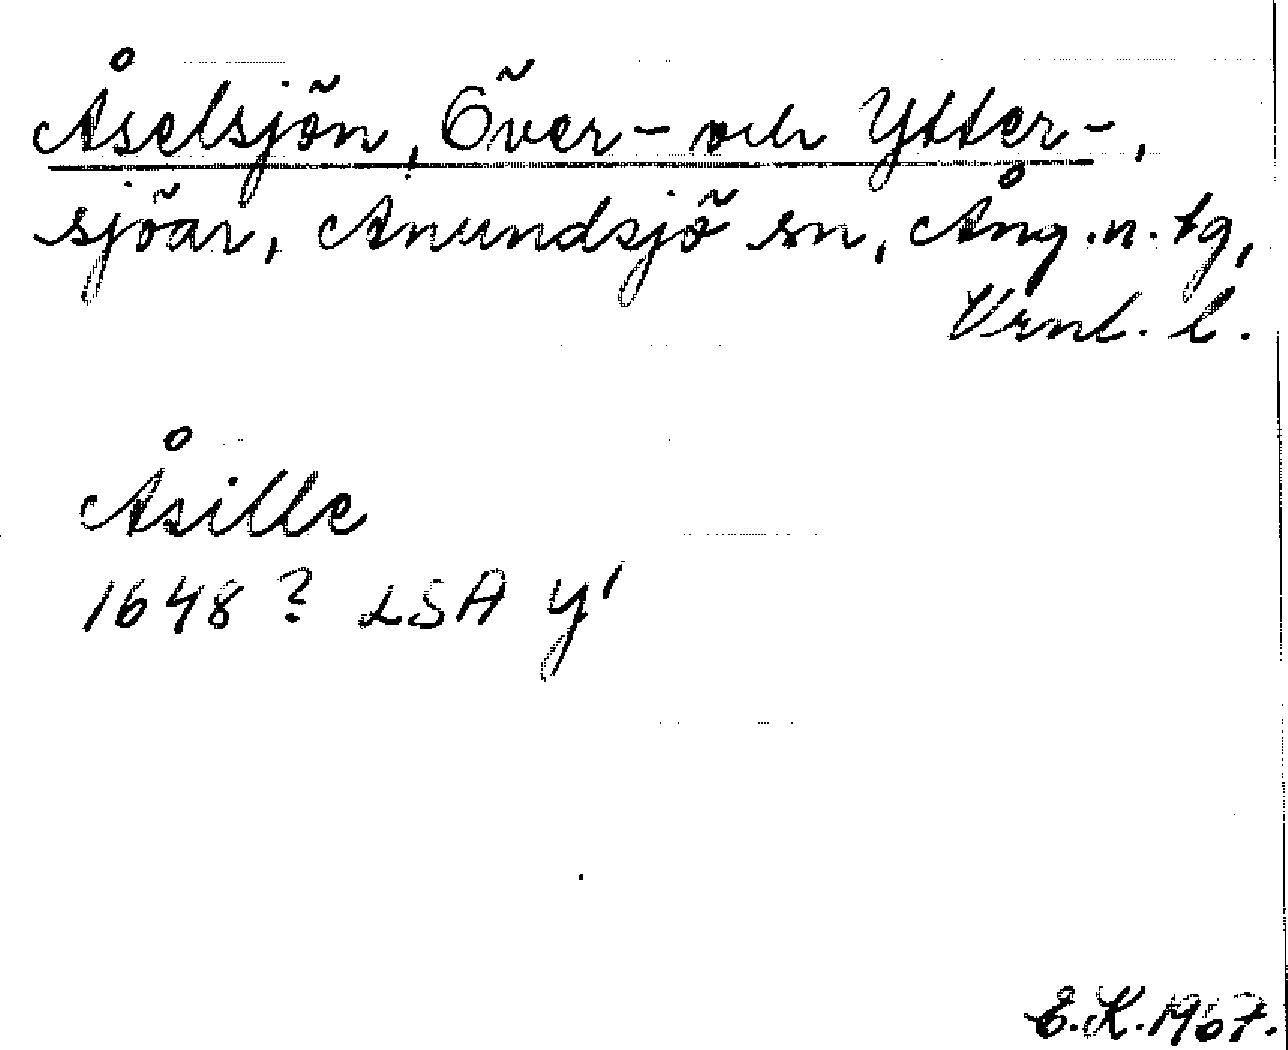 Åselsjön, Över- och Ytter-,
sjöar, Anundsjö sn, Ång. n. tg,
Vrnl. l.
Åsille
1648? LSA y¹
E.K. 1967.